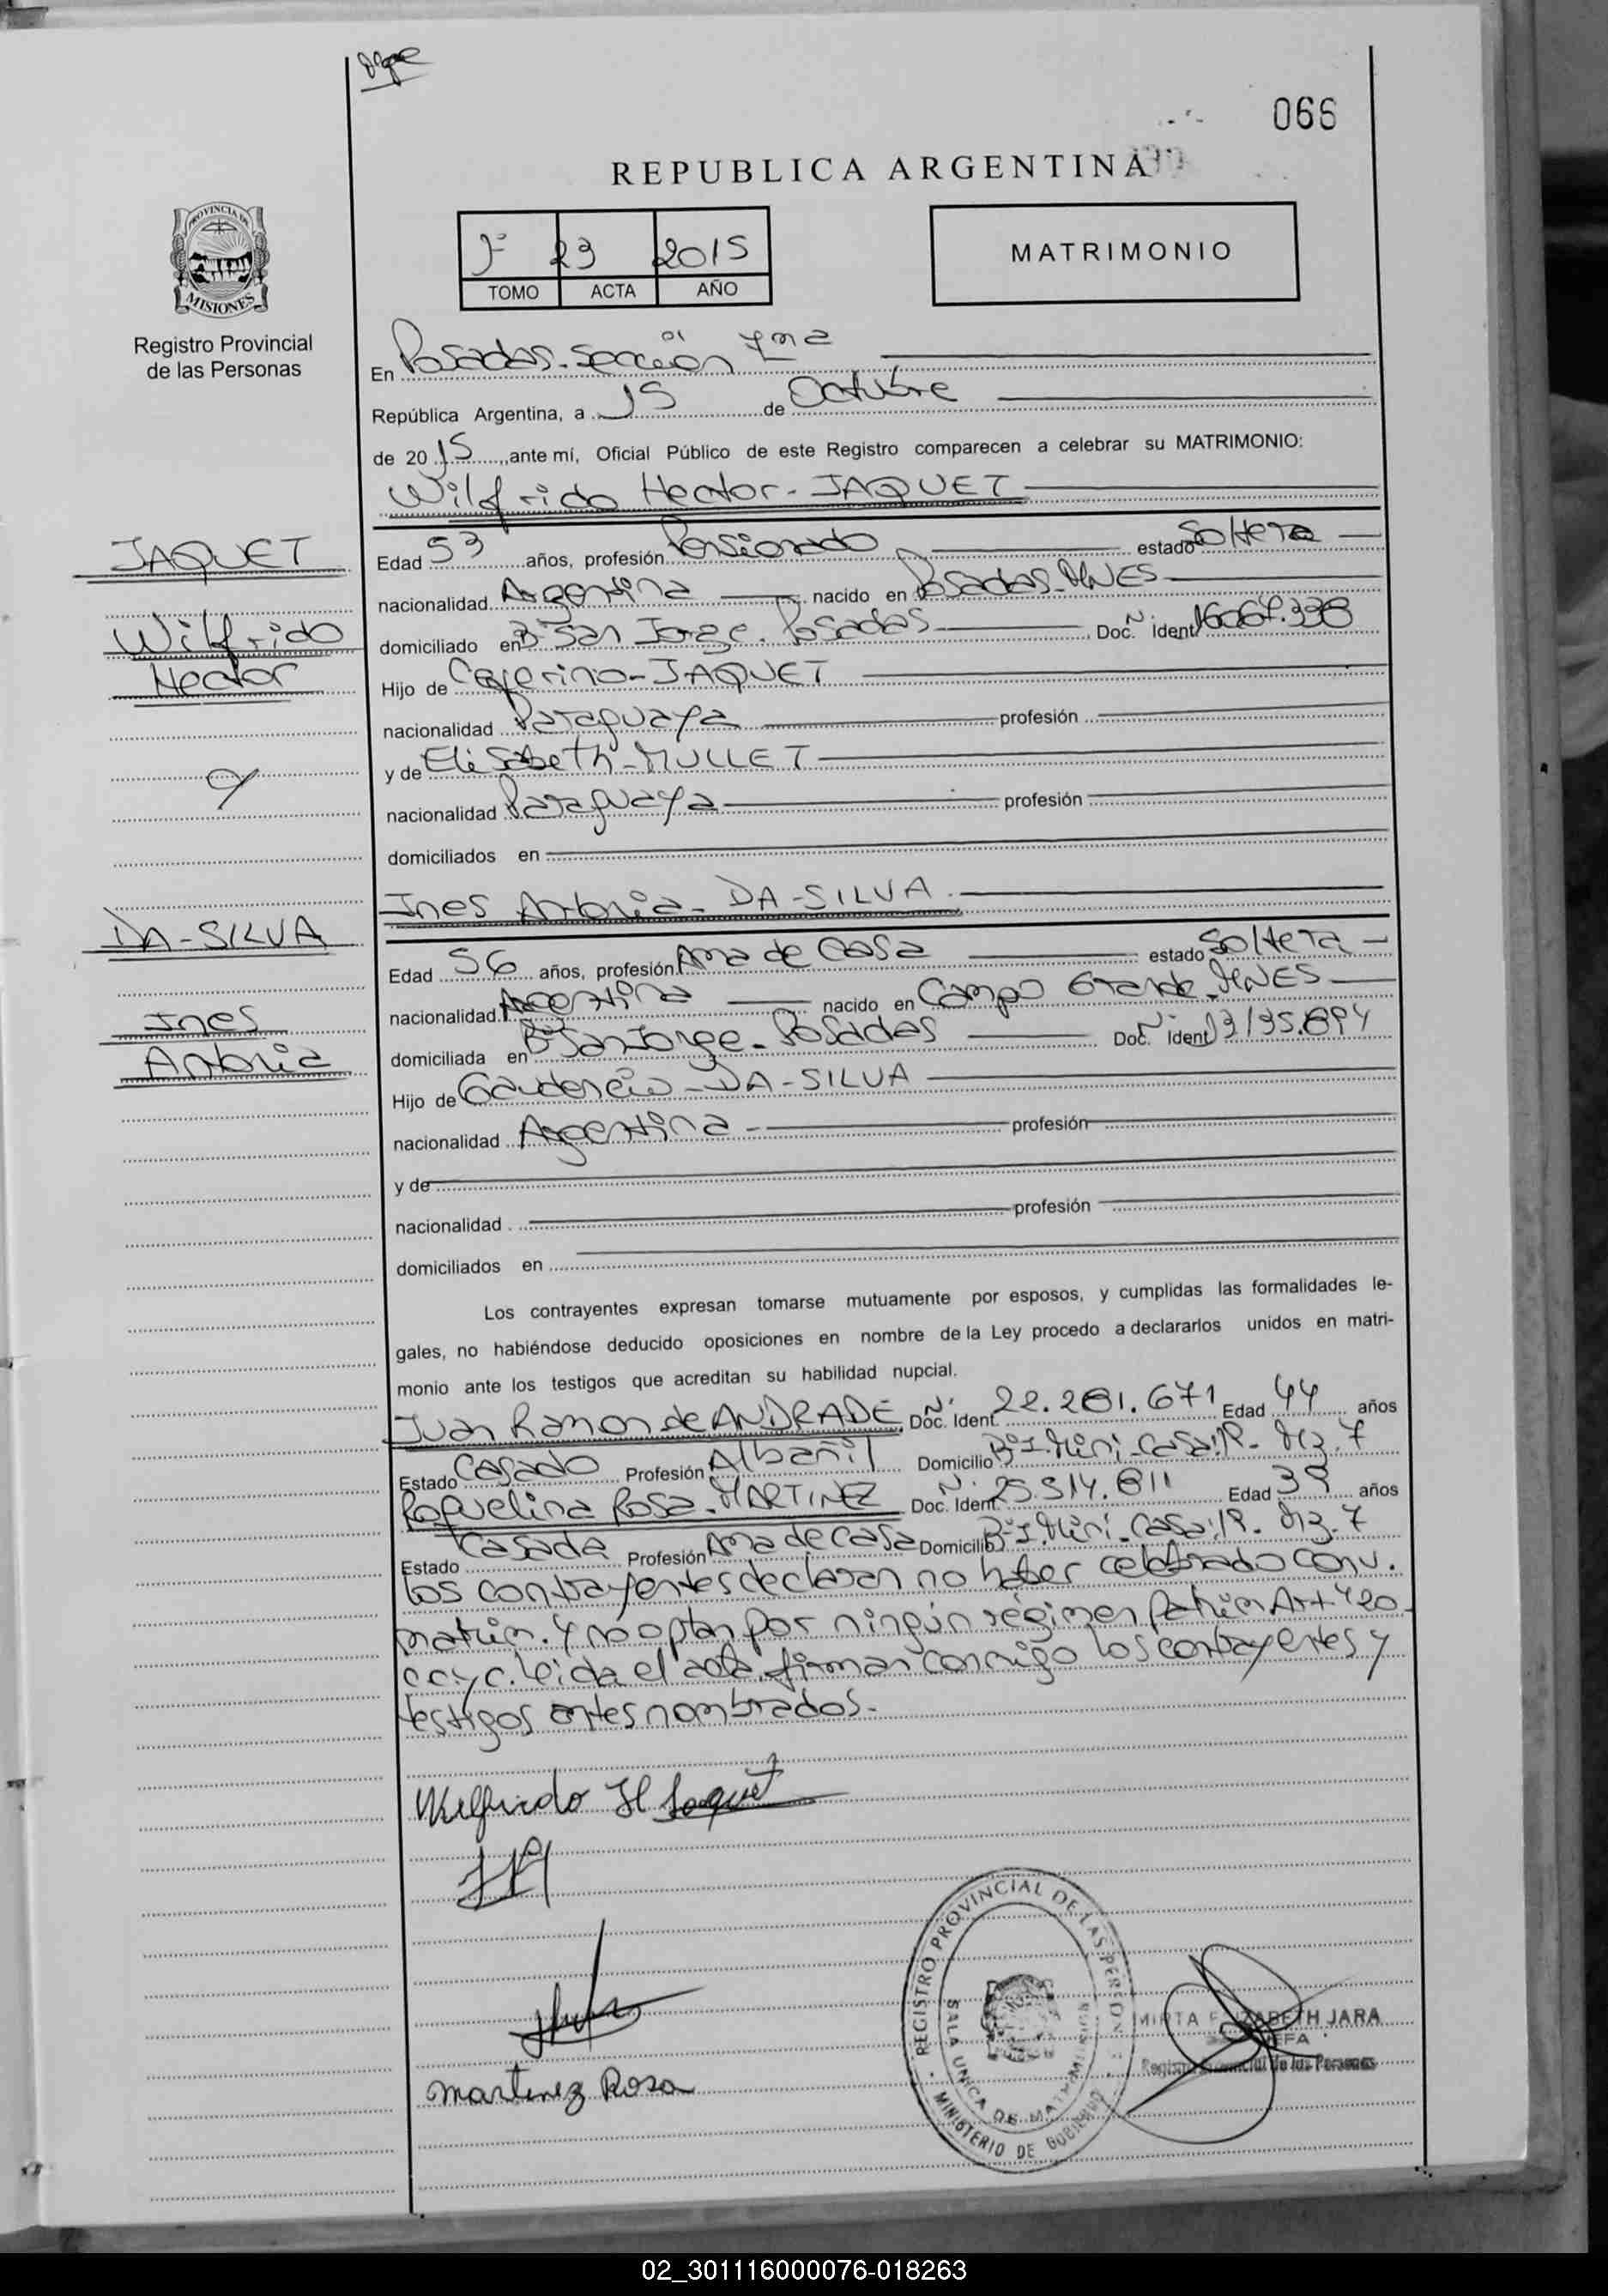 066
REPUBLICA ARGENTINA
PROVINCIA DE
MISIONES
Registro Provincial
de las Personas
23 2015
TOMO ACTA AÑO
MATRIMONIO
En Posadas-sección
República Argentina, a 15 de Octubre
de 2015, ante mí, Oficial Público de este Registro comparecen a celebrar su MATRIMONIO:
Wilfrido Hector-JAQUET
JAQUET
Wilfrido
Hector
Edad 53 años, profesión Pensionado estado Soltero
nacionalidad Argentina nacido en Posadas-MNES
domiciliado en B° San Jorge-Posadas Doc. N° Ident.
Hijo de Ceferino-JAQUET
nacionalidad Paraguaya profesión
y de Elisabeth-MULLET
nacionalidad Paraguaya profesión
domiciliados en
Ines Antonia-DA-SILVA
DA-SILVA
Ines
Antonia
Edad 56 años, profesión Ama de Casa estado Soltera
nacionalidad Argentina nacido en Campo Grande-MNES
domiciliada en B° San Jorge-Posadas Doc. N° Ident. 13135.894
Hijo de Gaudencio-DA-SILVA
nacionalidad Argentina profesión
y de
nacionalidad profesión
domiciliados en
Los contrayentes expresan tomarse mutuamente por esposos, y cumplidas las formalidades le-
gales, no habiéndose deducido oposiciones en nombre de la Ley procedo a declararlos unidos en matri-
monio ante los testigos que acreditan su habilidad nupcial.
Juan Ramon de ANDRADE Doc. N° Ident. 22.281.671 Edad 44 años
Estado Casado Profesión Albañil Domicilio
Roquelina Rosa-MARTINEZ Doc. N° Ident. 25.514.811 Edad 39 años
Estado Casada Profesión Ama de Casa Domicilio
los contrayentes declaran no haber celebrado conv.
matrim. y no optan por ningún régimen Patrim Art 420
ccyc. leida el acta, firman conmigo los contrayentes y
testigos antes nombrados.-
Wilfrido H Jaquet
Martinez Rosa
REGISTRO PROVINCIAL DE LAS PERSONAS
SALA UNICA DE MATRIMONIOS
MINISTERIO DE GOBIERNO
MIRTA ELIZABETH JARA
JEFA
Registro Provincial de las Personas
02_301116000076-018263